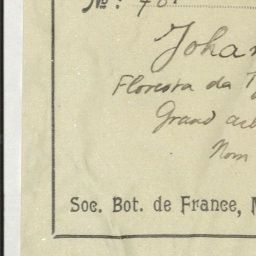 No: 76.
Johan
Floresta da T
Grand
Nom
Soc. Bot. de France,